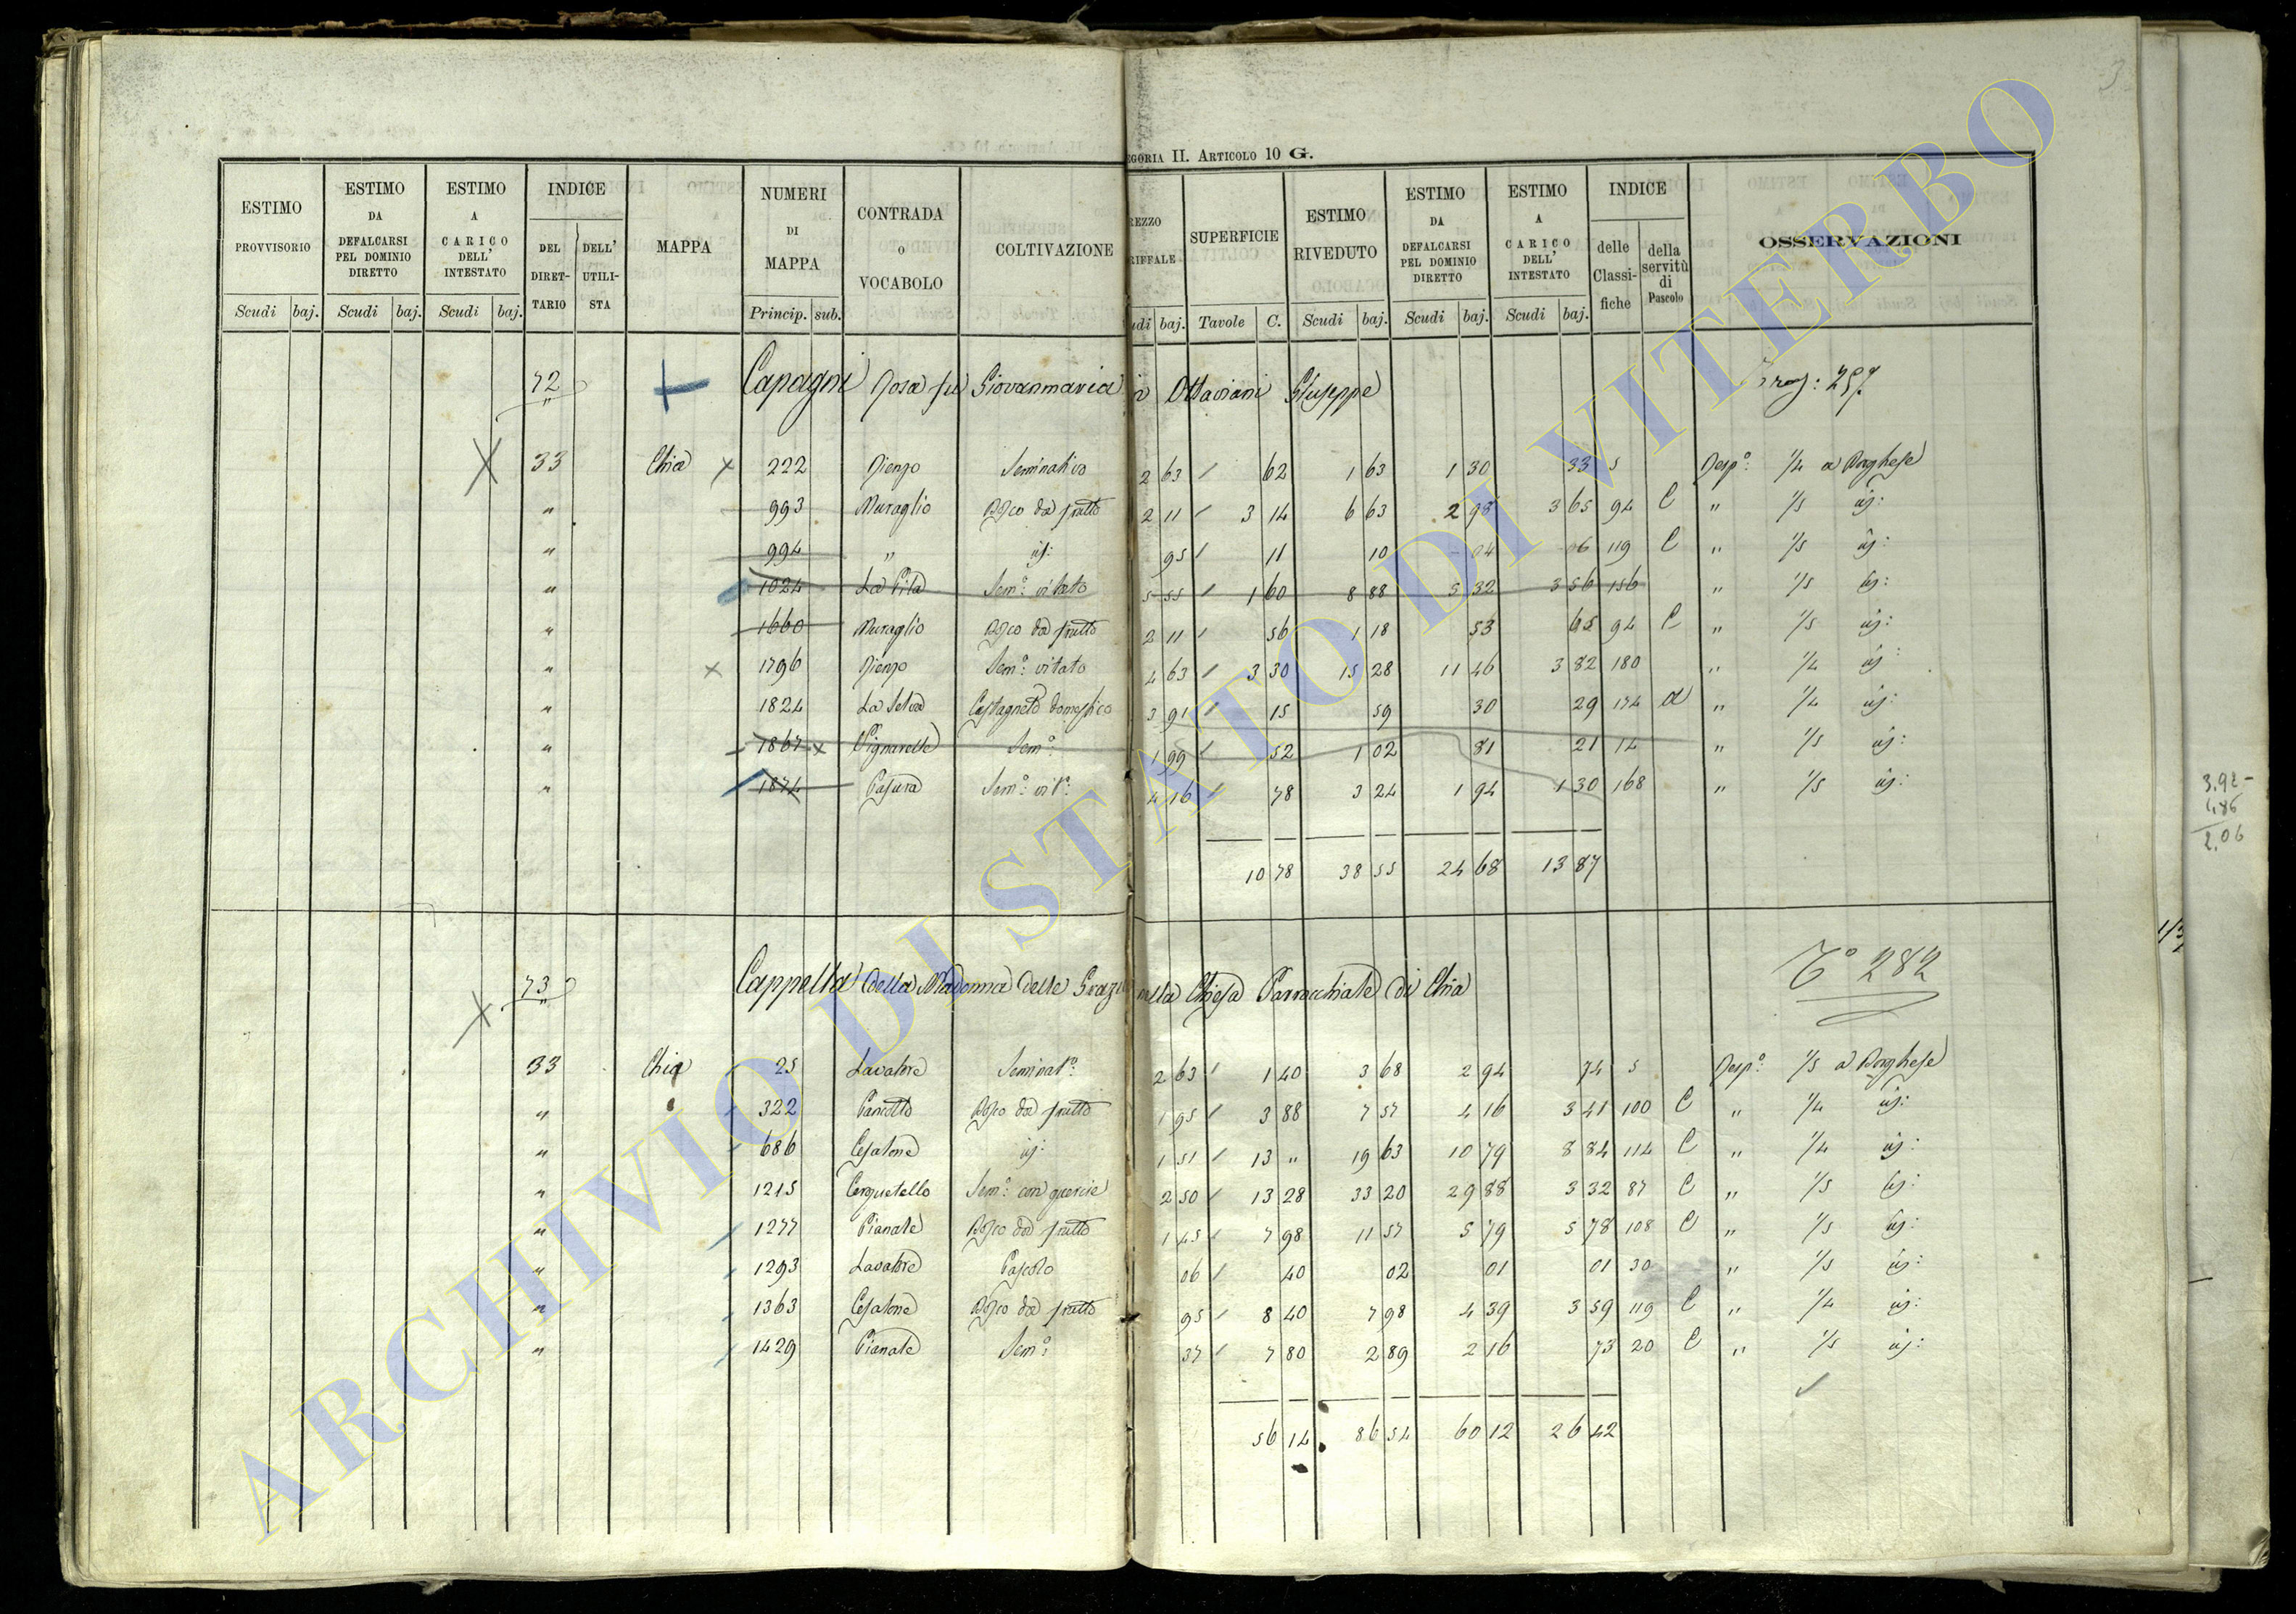 EGORIA II. ARTICOLO 10 G.
3
ESTIMO PROVVISORIO Scudi baj. ESTIMO DA DEFALCARSI PEL DOMINIO DIRETTO Scudi baj. ESTIMO A CARICO DELL' INTESTATO Scudi baj. INDICE DEL DIRETTARIO DELL' UTILISTA MAPPA NUMERI DI MAPPA Princip. sub. CONTRADA O VOCABOLO COLTIVAZIONE REZZO RIFFALE udi baj. SUPERFICIE Tavole C. ESTIMO RIVEDUTO Scudi baj. ESTIMO DA DEFALCARSI PEL DOMINIO DIRETTO Scudi baj. ESTIMO A CARICO DELL' INTESTATO Scudi baj. INDICE delle Classifiche della servitù di Pascolo OSSERVAZIONI
72 Capagni Rosa fu Giovanmaria in Ottaviani Giuseppe 257
33 Chia x 222 Rienzo Seminativo 2 63 / 62 1 63 1 30 33 5 Resp.º: 1/4 a Borghese
" 993 Muraglio Bosco da frutto 2 11 / 3 14 6 63 2 98 3 65 94 C " 1/5 id:
" 994 " id: 95 / 11 10 04 06 119 C " 1/5 id:
" 1024 La Pila Sem.º: vitato 5 55 / 1 60 8 88 5 32 3 56 156 " 1/5 id:
" 1660 Muraglio Bosco da frutto 2 11 / 56 1 18 53 65 94 C " 1/5 id:
" x 1796 Rienzo Sem.º: vitato 4 63 / 3 30 15 28 11 46 3 82 180 " 1/4 id:
" 1824 La Selva Castagneto domestico 3 91 / 15 59 30 29 174 a " 1/4 id:
" 1867 x Vignarelle Sem.º: 1 99 / 52 1 02 81 21 14 " 1/5 id:
" 1874 Casura Sem.º: vit.º: 4 16 / 78 3 24 1 94 1 30 168 " 1/5 id:
10 78 38 55 24 68 13 87
73 Cappella della Madonna delle Grazie nella Chiesa Parrocchiale di Chia Tº 282
33 Chia 25 Lavatore Seminat.º: 2 63 / 1 40 3 68 2 94 74 5 Resp.º: 1/5 a Borghese
" 322 Bosco da frutto 1 95 / 3 88 7 57 4 16 3 41 100 C " 1/4 id:
" 686 Cesalone id: 1 51 / 13 " 19 63 10 79 8 84 114 C " 1/4 id:
" 1215 Cerquetello Sem.º: con quercie 2 50 / 13 28 33 20 29 88 3 32 87 C " 1/5 id:
" 1277 Pianale Bosco da frutto 1 45 / 7 98 11 57 5 79 5 78 108 C " 1/5 id:
" 1293 Lavatore Pascolo 06 / 40 02 01 01 30 " 1/5 id:
" 1363 Cesalone Bosco da frutto 95 / 8 40 7 98 4 39 3 59 119 C " 1/4 id:
" 1429 Pianale Sem.º: 37 / 7 80 2 89 2 16 73 20 C " 1/5 id:
56 14 86 54 60 12 26 42
3.92
1.86
2.06
ARCHIVIO DI STATO DI VITERBO